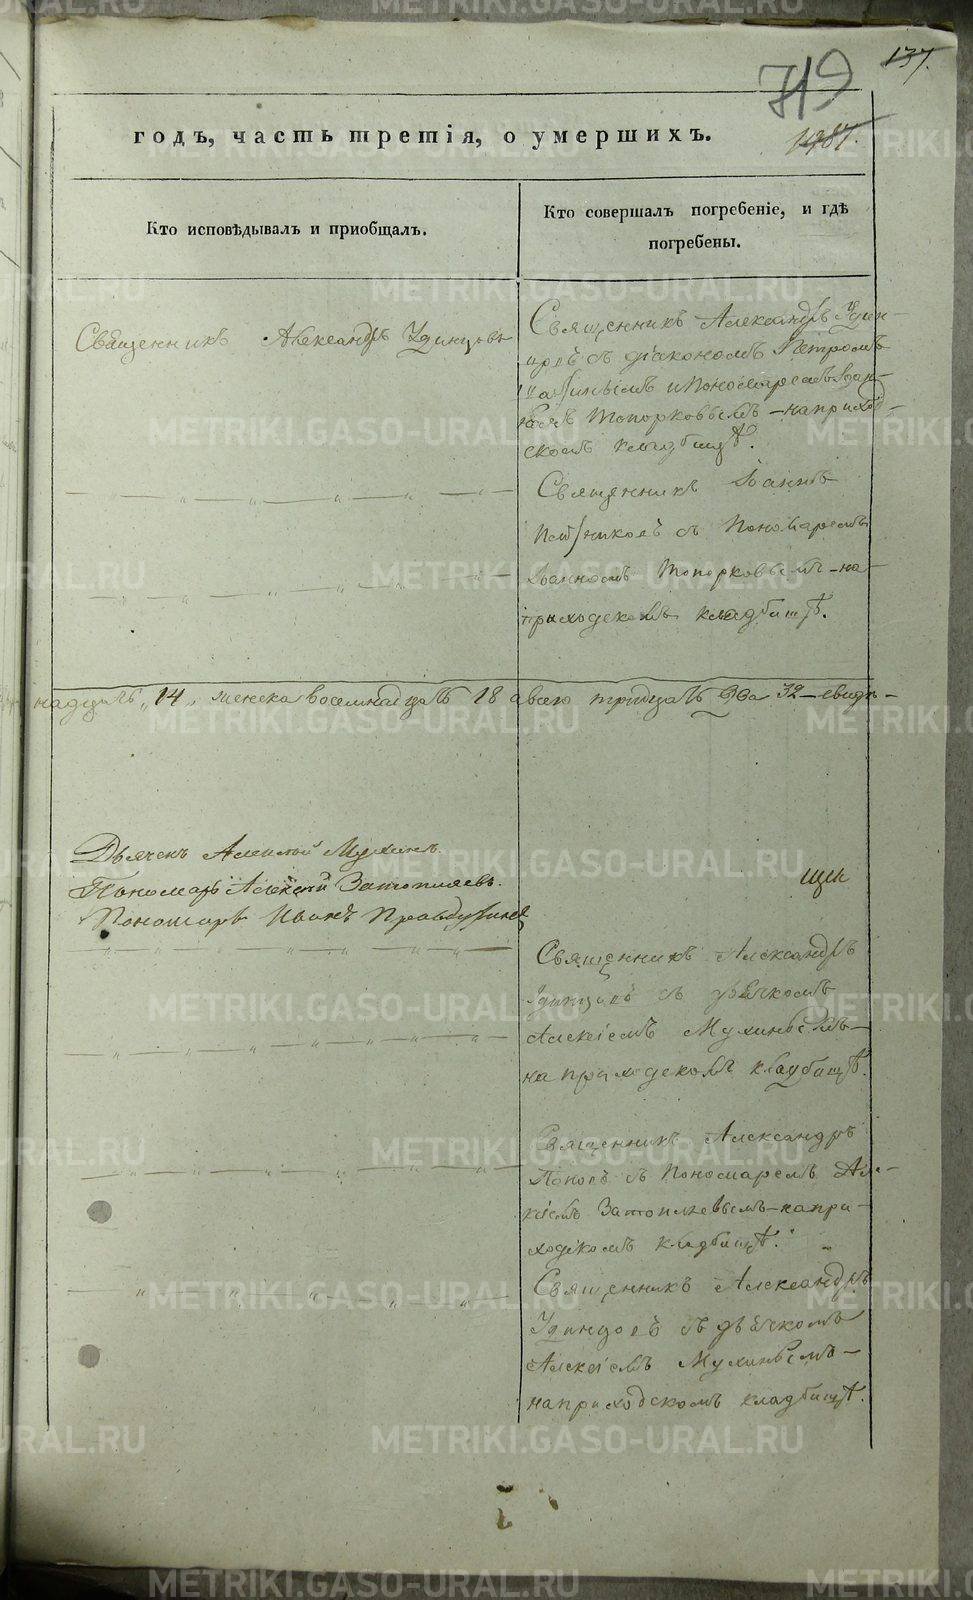 137.
719
1487.
годъ, часть третія, о умершихъ.
Кто исповѣдывалъ и приобщалъ.
Кто совершалъ погребеніе, и гдѣ
погребены.
Священникъ Александръ Удинцовъ
Священникъ Александръ Удин-
цовъ съ діакономъ Петромъ
и Пономаремъ Іоан-
номъ Топорковымъ – на приход-
скомъ кладбищѣ.
Священникъ Іоаннъ
съ Пономаремъ
Іоанномъ Топорковымъ – на
приходскомъ кладбищѣ.
надцать „14„ женска восемнадцать 18 а всего тридцать два 32 – свидѣ-
Дьячекъ Алексѣй Мухинъ.
Пономарь Алексѣй Затопляевъ.
Пономарь Иванъ
щен
Священникъ Александръ
Удинцовъ съ дьячкомъ
Алексіемъ Мухинымъ –
на приходскомъ кладбищѣ.
Священникъ Александръ
Поповъ съ Пономаремъ Але-
ксіемъ Затопляевымъ – на при-
ходскомъ кладбищѣ.
Священникъ Александръ
Удинцовъ съ дьячкомъ
Алексіемъ Мухинымъ –
на приходскомъ кладбищѣ.
METRIKI.GASO-URAL.RU